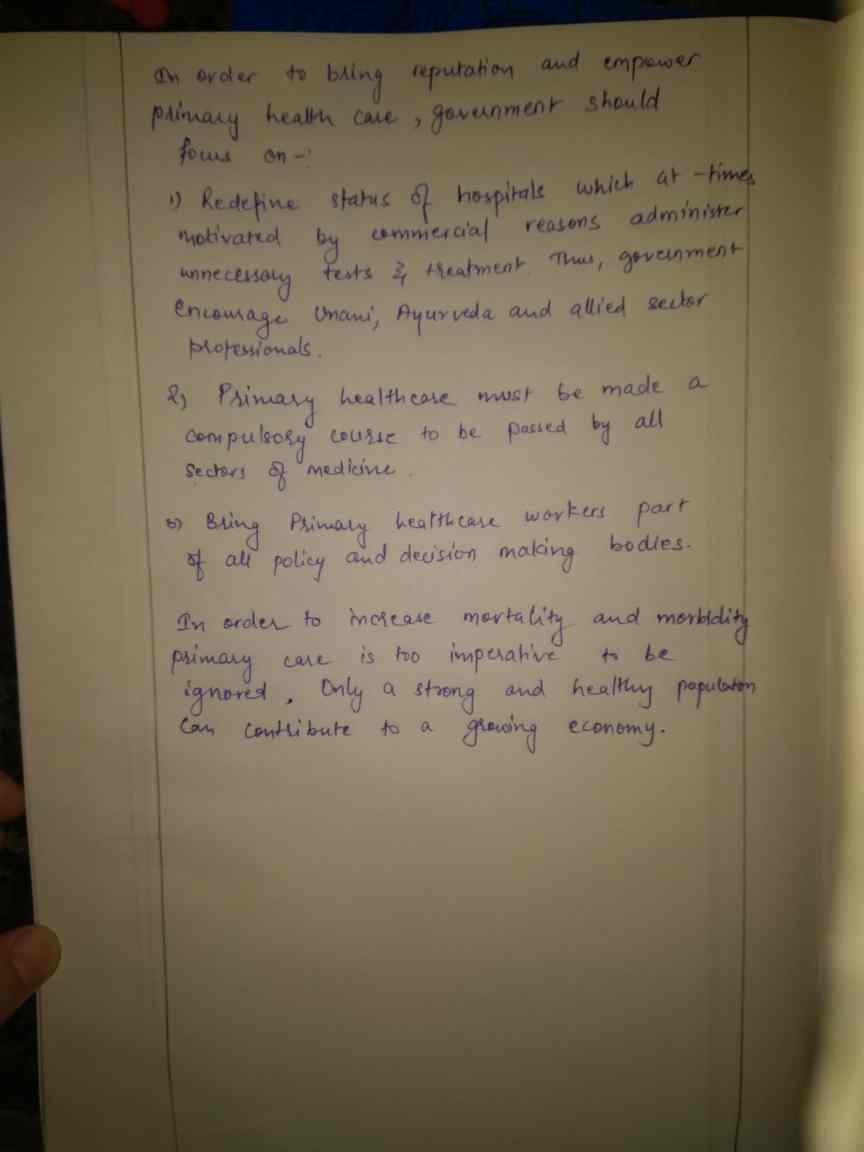 In order to bring reputation and empower
primary health care, government should
focus on -:
1) Redefine status of hospitals which at-times
motivated by commercial reasons administer
unnecessary tests & treatment. Thus, government
encourage Unani, Ayurveda and allied sector
professionals.
2) Primary healthcare must be made a
compulsory course to be passed by all
sectors of medicine.
3) Bring Primary healthcare workers part
of all policy and decision making bodies.
In order to increase mortality and morbidity
primary care is too imperative to be
ignored. Only a strong and healthy population
can contribute to a growing economy.